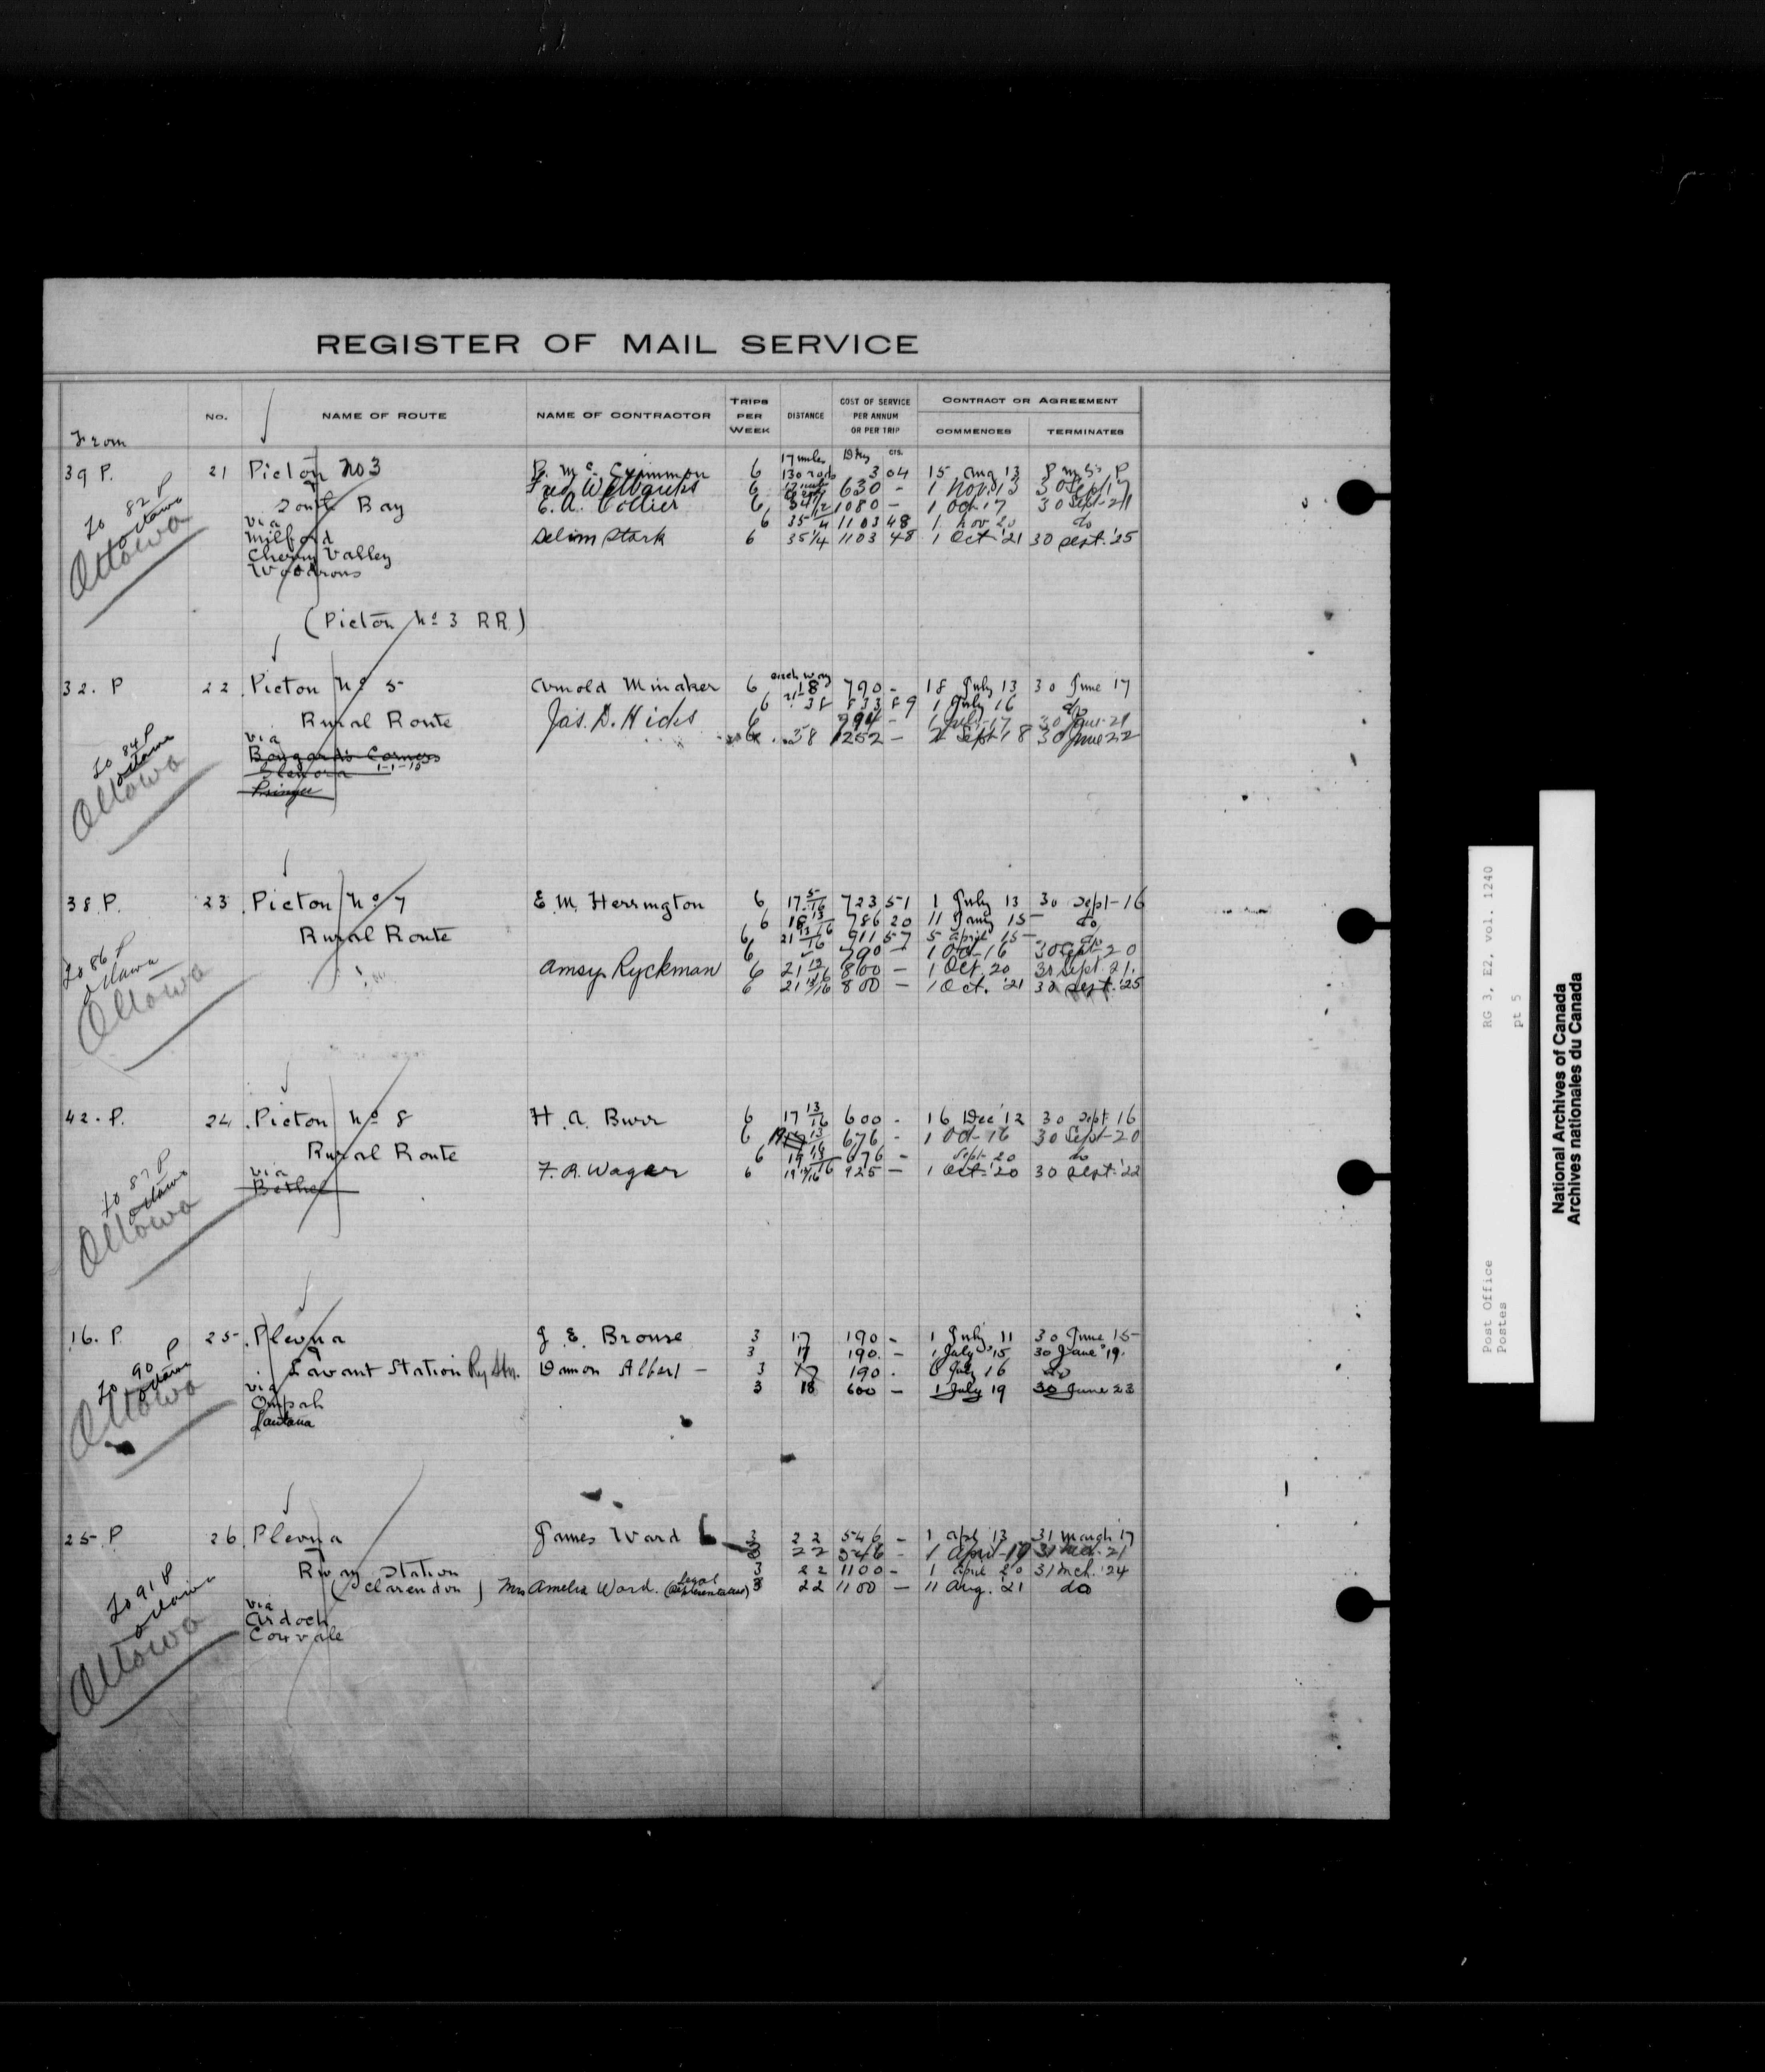 REGISTER OF MAIL SERVICE
From
No.
NAME OF ROUTE
NAME OF CONTRACTOR
TRIPS PER WEEK
DISTANCE
COST OF SERVICE PER ANNUM OR PER TRIP
CONTRACT OR AGREEMENT
COMMENCES
TERMINATES
39 P. 21 Picton No 3 6 17 miles 130 rods 3 04 15 Aug 13
6 630 - 1 Nov. 13 30 Sept 17
South Bay 6 1080 - 1 Oct 17 30 Sept-21
via 6 35 1/4 1103 48 1 Nov 20 do
Milford Selim Stark 6 35 1/4 1103 48 1 Oct '21 30 Sept. '25
Cherry Valley
To 82 P Ottawa
Ottawa
(Picton No 3 RR)
32. P 22. Picton No 5 Arnold Minaker 6 each way 18 790 - 18 July 13 30 June 17
6 38 833 89 1 July 16 do
Rural Route Jas. D. Hicks 6 994 - 17 30 June 21
via 38 1252 - 2 Sept 18 30 June 22
Bongard's Corners
Glenora
Pringer
To 84 P Ottawa
Ottawa
38. P. 23. Picton No 7 E. M. Herrington 6 17 5/16 723 51 1 July 13 30 Sept-16
6 18 13/16 786 20 11 15 do
Rural Route 6 21 13/16 911 57 5 April 15 do
6 790 - 1 Oct-16 30 Sept-20
Amsy Ryckman 6 21 13/16 800 - 1 Oct. 20 30 Sept. 21.
6 21 13/16 800 - 1 Oct. '21 30 Sept. '25
To 86 P Ottawa
Ottawa
42. P. 24. Picton No 8 H. A. Burr 6 17 13/16 600 - 16 Dec '12 30 Sept 16
6 676 - 1 Oct-16 30 Sept-20
Rural Route 6 676 - Sept 20 do
via F. A. Wager 6 19 13/16 925 - 1 Oct. '20 30 Sept. '22
Bethel
To 87 P Ottawa
Ottawa
16. P. 25. Plevna J. E. Brouse 3 17 190 - 1 July 11 30 June 15
3 17 190. - 1 July '15 30 June '19.
Lavant Station Ry Stn. Damon Albert - 3 17 190. July 16 do
via 3 18 600 - 1 July 19 30 June 23
Ompah
To 90 P Ottawa
Ottawa
25. P. 26. Plevna James Ward 3 22 546 - 1 Apl '13 31 March 17
3 22 546 - 1 April-17 31 Mch-21
Rway Station 3 22 1100 - 1 April 20 31 Mch. '24
(Clarendon) Mrs Amelia Ward. (Legal Representative) 3 22 1100 - 11 Aug. '21 do
via
Ardoch
Coxvale
To 91 P Ottawa
Ottawa
Post Office
Postes
RG 3, E2, vol. 1240
pt 5
National Archives of Canada
Archives nationales du Canada